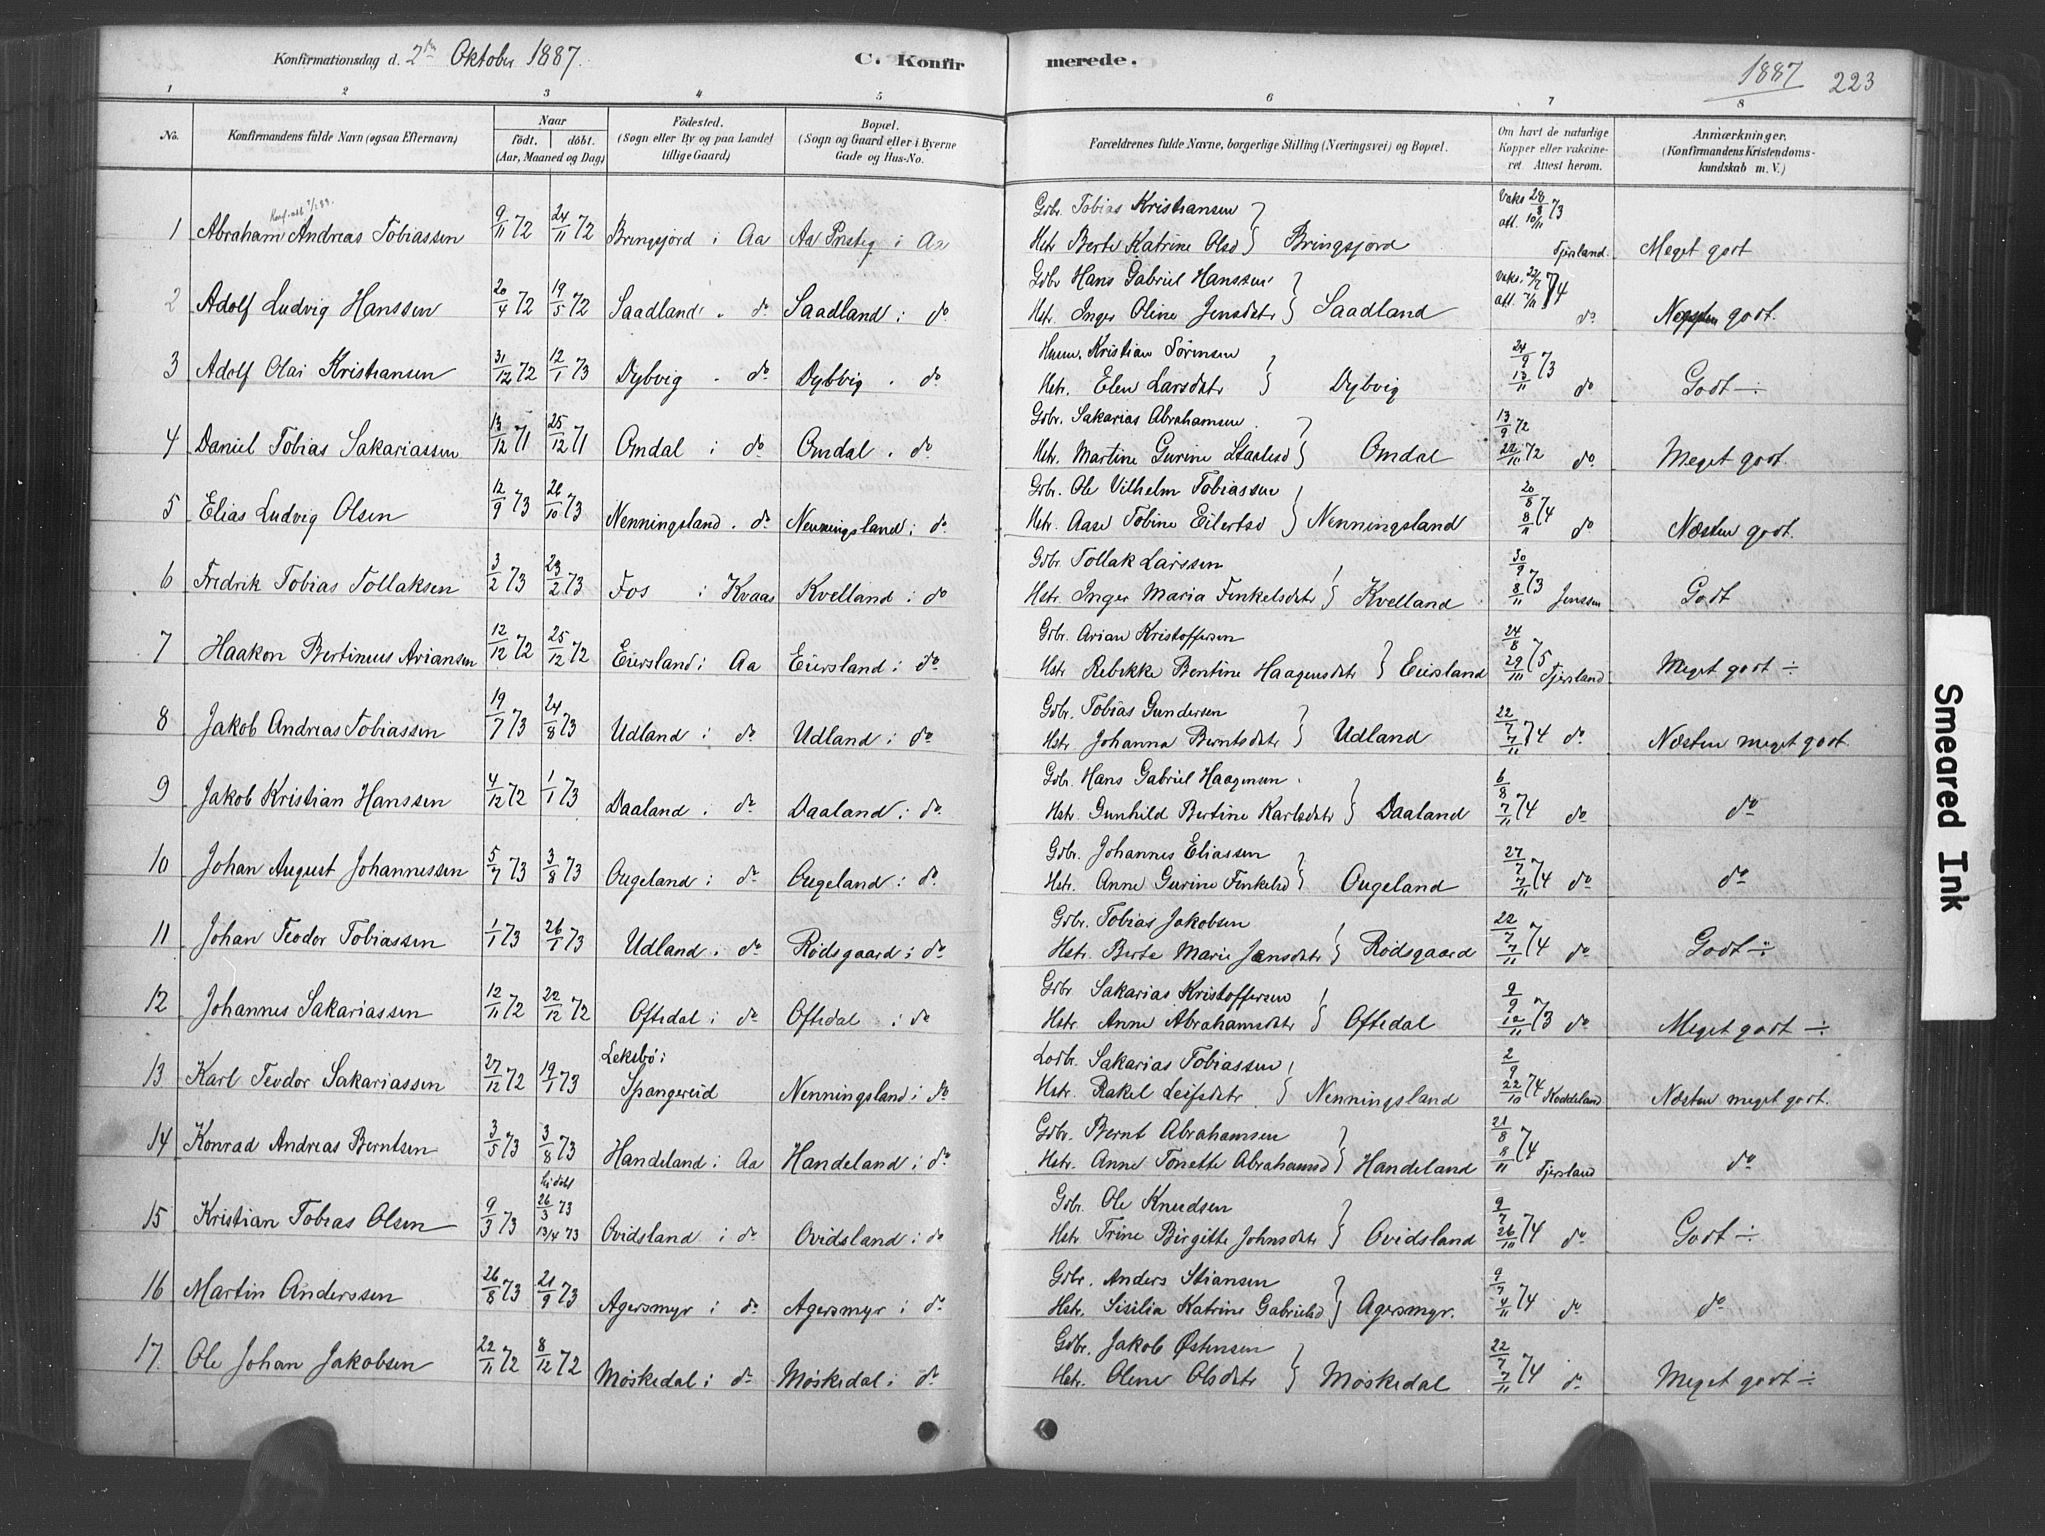 Konfirmationsdag d. 2den Oktober 1887. C. Konfirmerede. 1887 223
1 2 3 4 5 6 7 8
No. Konfirmandens fulde Navn (ogsaa Efternavn) Naar født. døbt. (Aar, Maaned og Dag) Fødested. (Sogn eller By og paa Landet tillige Gaard) Bopæl. (Sogn og Gaard eller i Byerne Gade og Hus-No. Forældrenes fulde Navne, borgerlige Stilling (Næringsvei) og Bopæl. Om havt de naturlige Kopper eller vakcineret. Attest herom. Anmærkninger. (Konfirmandens Kristendomskundskab m. V.)
1 Abraham Andreas Tobiassen 9/11 72 24/11 72 Bringsjord i Aa Aa Prstg i Aa Gdbr. Tobias Kristiansen Hstr Berte Katrine Olsd } Bringsjord Vaks 28/8 73 att. 10/11 Fjersland Meget godt
2 Adolf Ludvig Hanssen 20/4 72 19/5 72 Saadland . do Saadland i do Gdbr Hans Gabriel Hanssen Hstr. Inger Oline Jensdatr } Saadland Vaks. att. 74 do godt.
3 Adolf Olai Kristiansen 31/12 72 12/1 73 Dybvig . do Dybvig . do Husm. Kristian Sørensen Hstr. Elen Larsdatr } Dybvig 24/9 73 10/11 do Godt ÷
4 Daniel Tobias Sakariassen 13/12 71 25/12 71 Omdal i do Omdal . do Gdbr. Sakarias Abrahamsen Hstr. Martine Gurine Staalesd } Omdal 13/9 72 22/10 72 do Meget godt.
5 Elias Ludvig Olsen 12/9 73 26/10 73 Nenningsland . do Nenningsland i do Gdbr. Ole Vilhelm Tobiassen Hstr. Aase Tobine Eilertsd } Nenningsland 20/8 74 8/11 do Næsten godt.
6 Fredrik Tobias Tollaksen 3/2 73 23/2 73 Fos i Kvaas Kvelland i do Gdbr. Tollak Larssen Hstr. Inger Maria Finkelsdatr } Kvelland 30/9 73 8/11 Jenssen Godt
7 Haakon Bertineus Ariansen 12/12 72 25/12 72 Eiersland i Aa Eiersland i do Gdbr. Arian Kristoffersen Hstr Rebekke Bentine Haagensdatr } Eiersland 24/8 75 29/10 Fjersland Meget godt ÷
8 Jakob Andreas Tobiassen 19/7 73 24/8 73 Udland i do Udland i do Gdbr. Tobias Gundersen Hstr Johanna Berntsdatr } Udland 22/7 74 7/11 do Næsten meget godt.
9 Jakob Kristian Hanssen 4/12 72 1/1 73 Daaland . do Daaland i do Gdbr Hans Gabriel Haagensen Hstr. Gunhild Bertine Karlsdatr } Daaland 6/8 74 7/11 do do
10 Johan August Johannessen 5/7 73 3/8 73 Ougeland i do Ougeland i do Gdbr. Johannes Eliassen Hstr. Anne Gurine Finkelsd } Ougeland 27/7 74 7/11 do do
11 Johan Teodor Tobiassen 1/1 73 26/1 73 Udland . do Rødsgaard i do Gdbr. Tobias Jakobsen Hstr. Berte Marie Jensdatr } Rødsgaard 22/7 74 7/11 do Godt ÷
12 Johannes Sakariassen 12/11 72 22/12 72 Oftedal i do Oftedal i do Gdbr Sakarias Kristoffersen Hstr Anne Abrahamsdatr } Oftedal 9/9 73 12/11 do Meget godt ÷
13 Karl Teodor Sakariassen 27/12 72 19/1 73 Leksbø i Spangereid Nenningsland i do Lodbr. Sakarias Tobiassen Hstr. Rakel Leifsdatr } Nenningsland 2/9 74 22/10 Koddeland Næsten meget godt.
14 Konrad Andreas Berntsen 3/5 73 3/8 73 Handeland i Aa Handeland i do Gdbr. Bernt Abrahamsen Hstr. Anne Tonette Abrahamsd } Handeland 21/8 74 8/11 Fjersland do
15 Kristian Tobias Olsen 9/3 73 hjdøbt 26/3 73 13/4 73 Ovidsland i do Ovidsland i do Gdbr. Ole Knudsen Hstr Trine Birgitte Johnsdatr } Ovidsland 9/7 74 26/10 do Godt ÷
16 Martin Anderssen 26/8 73 21/9 73 Agersmyr i do Agersmyr i do Gdbr. Anders Stiansen Hstr. Sisilia Katrine Gabrielsd } Agersmyr. 9/7 74 4/11 do do
17. Ole Johan Jakobsen 22/11 72 8/12 72 Møskedal i do Møskedal i do Gdbr. Jakob Østensen Hstr. Olene Olsdatr } Møskedal 22/7 74 7/11 do Meget godt ÷
Smeared Ink